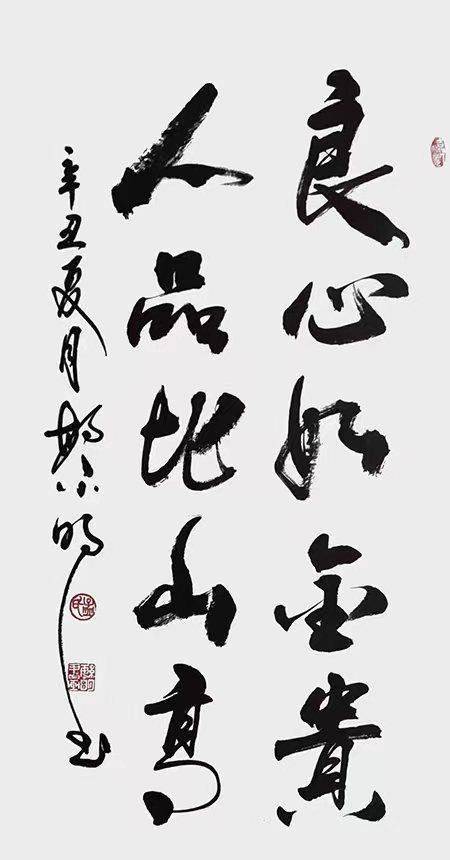 良心如金贵
人品比山高
辛丑夏月 小明书